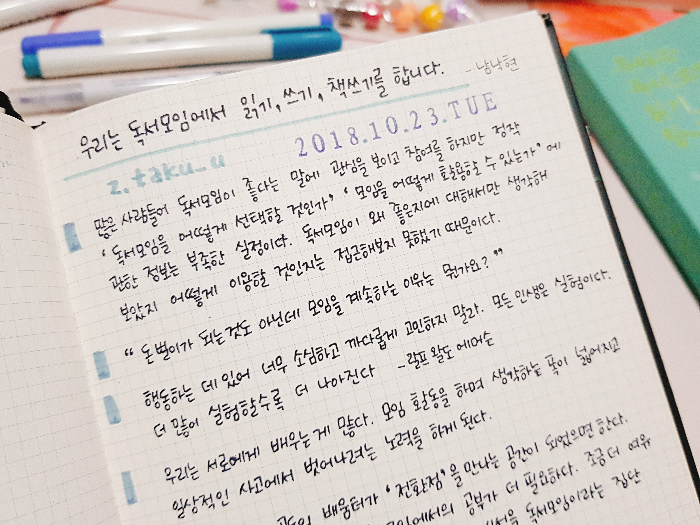 우리는 독서모임에서 읽기, 쓰기, 책쓰기를 합니다. - 남낙현
2018.10.23.TUE
z.taku_u
많은 사람들이 독서모임이 좋다는 말에 관심을 보이고 참여를 하지만 정작
'독서모임을 어떻게 선택할 것인가' '모임을 어떻게 활용할 수 있는가'에
관한 정보는 부족한 실정이다. 독서모임이 왜 좋은지에 대해서만 생각해
보았지 어떻게 이용할 것인지는 접근해보지 못했기 때문이다.
"돈벌이가 되는 것도 아닌데 모임을 계속하는 이유는 뭔가요?"
행동하는 데 있어 너무 소심하고 까다롭게 고민하지 말라. 모든 인생은 실험이다.
더 많이 실험할수록 더 나아진다 - 랄프 왈도 에머슨
우리는 서로에게 배우는 게 많다. 모임 활동을 하며 생각하는 폭이 넓어지고
일상적인 사고에서 벗어나려는 노력을 하게 된다.
배움터가 '전환점'을 만나는 공간이 되었으면 한다.
모임에서의 공부가 더 필요하다. 조금 더 여유
독서모임이라는 집단